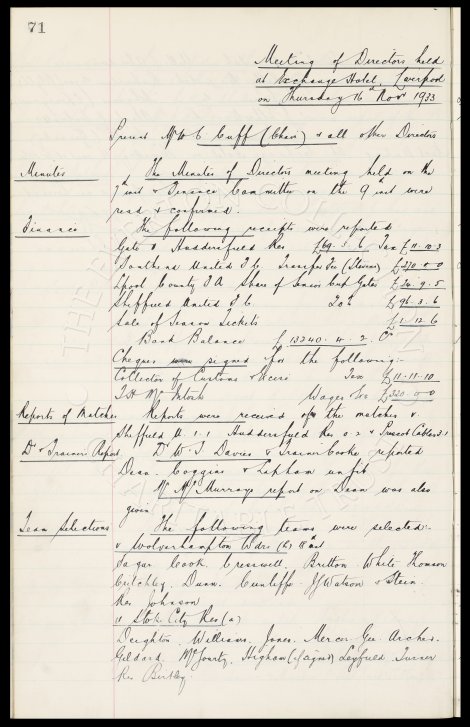 71
Meeting of Directors held
at Exchange Hotel, Liverpool
on Thursday 16th Novr 1933
Present Mr W C Cuff (Chair) & all other Directors
Minutes The Minutes of Directors meeting held on the
7th inst & Finance Committee on the 9th inst were
read & confirmed.
Finance The following receipts were reported
Gate v Huddersfield Res £69.5.6 Tax £11.10.3
Southend United F.C. Transfer Fee (Stevens) £270.0.0
Lpool County F A Share of Senior Cup Gates £24.9.5
Sheffield United F.C. 20% £96.3.6
Sale of Season Tickets £1.12.6
Bank Balance £13240.4.2. Cr
Cheques were signed for the following:-
Collector of Customs & Excise Tax £11.11.10
T.H. McIntosh Wages &c £320.0.0
Reports of Matches Reports were received of the matches v
Sheffield U. 1.1 Huddersfield Res 0.2 & Prescot Cables
Dr & Trainers Report Dr W. J Davies & Trainer Cooke reported
Dean. Coggins & Lapham unfit
Mr McMurrays report on Dean was also
given.
Team Selections The following teams were selected:-
v Wolverhampton Wdrs (h) 18th inst
Sagar Cook. Cresswell. Britton. White Thomson
Critchley. Dunn. Cunliffe. J Watson & Stein.
Res Johnson
v Stoke City Res (a)
Deighton. Williams. Jones. Mercer Gee Archer.
Geldard. McGourty. Higham (if agreed) Leyfield Turner
Res Bentley.